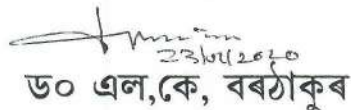 23/01/2020
ড০ এল,কে, বৰঠাকুৰ